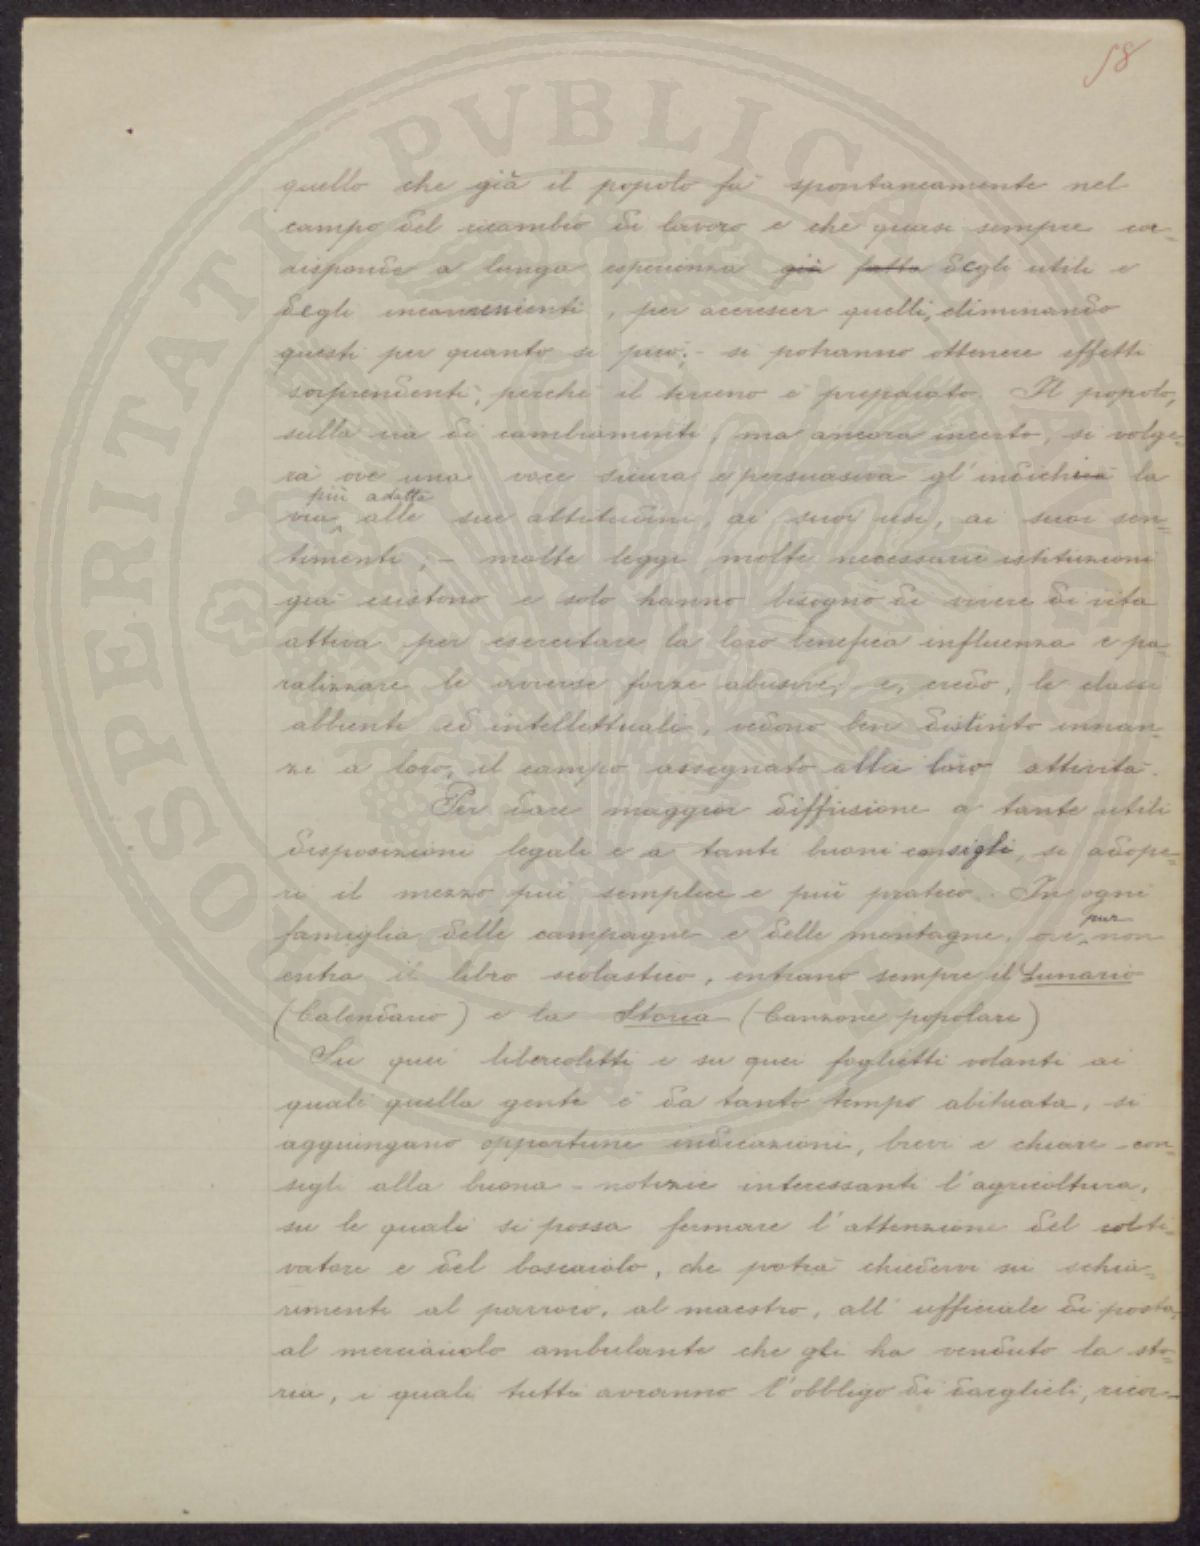 58
quello che già il popolo fa spontaneamente nel
campo del ricambio di lavoro e che quasi sempre cor=
risponde a lunga esperienza già fatta degli utili e
degli inconvenienti, per accrescer quelli, eliminando
questi per quanto si può; - si potranno ottenere effetti
sorprendenti, perché il terreno è preparato. Il popolo,
sulla via di cambiamenti, ma ancora incerto, si volge=
rà ove una voce sicura e persuasiva gl'indichi la
più adatta
via alle sue attitudini, ai suoi usi, ai suoi sen=
timenti; - molte leggi molte necessarie istituzioni
già esistono e solo hanno bisogno di vivere di vita
attiva per esercitare la loro benefica influenza e pa=
ralizzare le avverse forze abusive; e, credo, le classi
abbienti ed intellettuali, vedono ben distinto innan=
zi a loro, il campo assegnato alla loro attività.
Per dare maggior diffusione a tante utili
disposizioni legali e a tanti buoni consigli, si adope=
ri il mezzo più semplice e più pratico. In ogni
pur
famiglia delle campagne e delle montagne, ove non
entra il libro scolastico, entrano sempre il Lunario
(Calendario) e la Storia (Canzone popolare)
Su quei libercoletti e su quei foglietti volanti ai
quali quella gente è da tanto tempo abituata, si
aggiungano opportune indicazioni, brevi e chiare - con=
sigli alla buona - notizie interessanti l'agricoltura,
su le quali si possa fermare l'attenzione del colti=
vatore e del boscaiolo, che potrà chiedervi su schia=
rimenti al parroco, al maestro, all'ufficiale di posta,
al merciaiuolo ambulante che gli ha venduto la sto=
ria, i quali tutti avranno l'obbligo di darglieli, ricor=
PROSPERITATI PVBLICAE